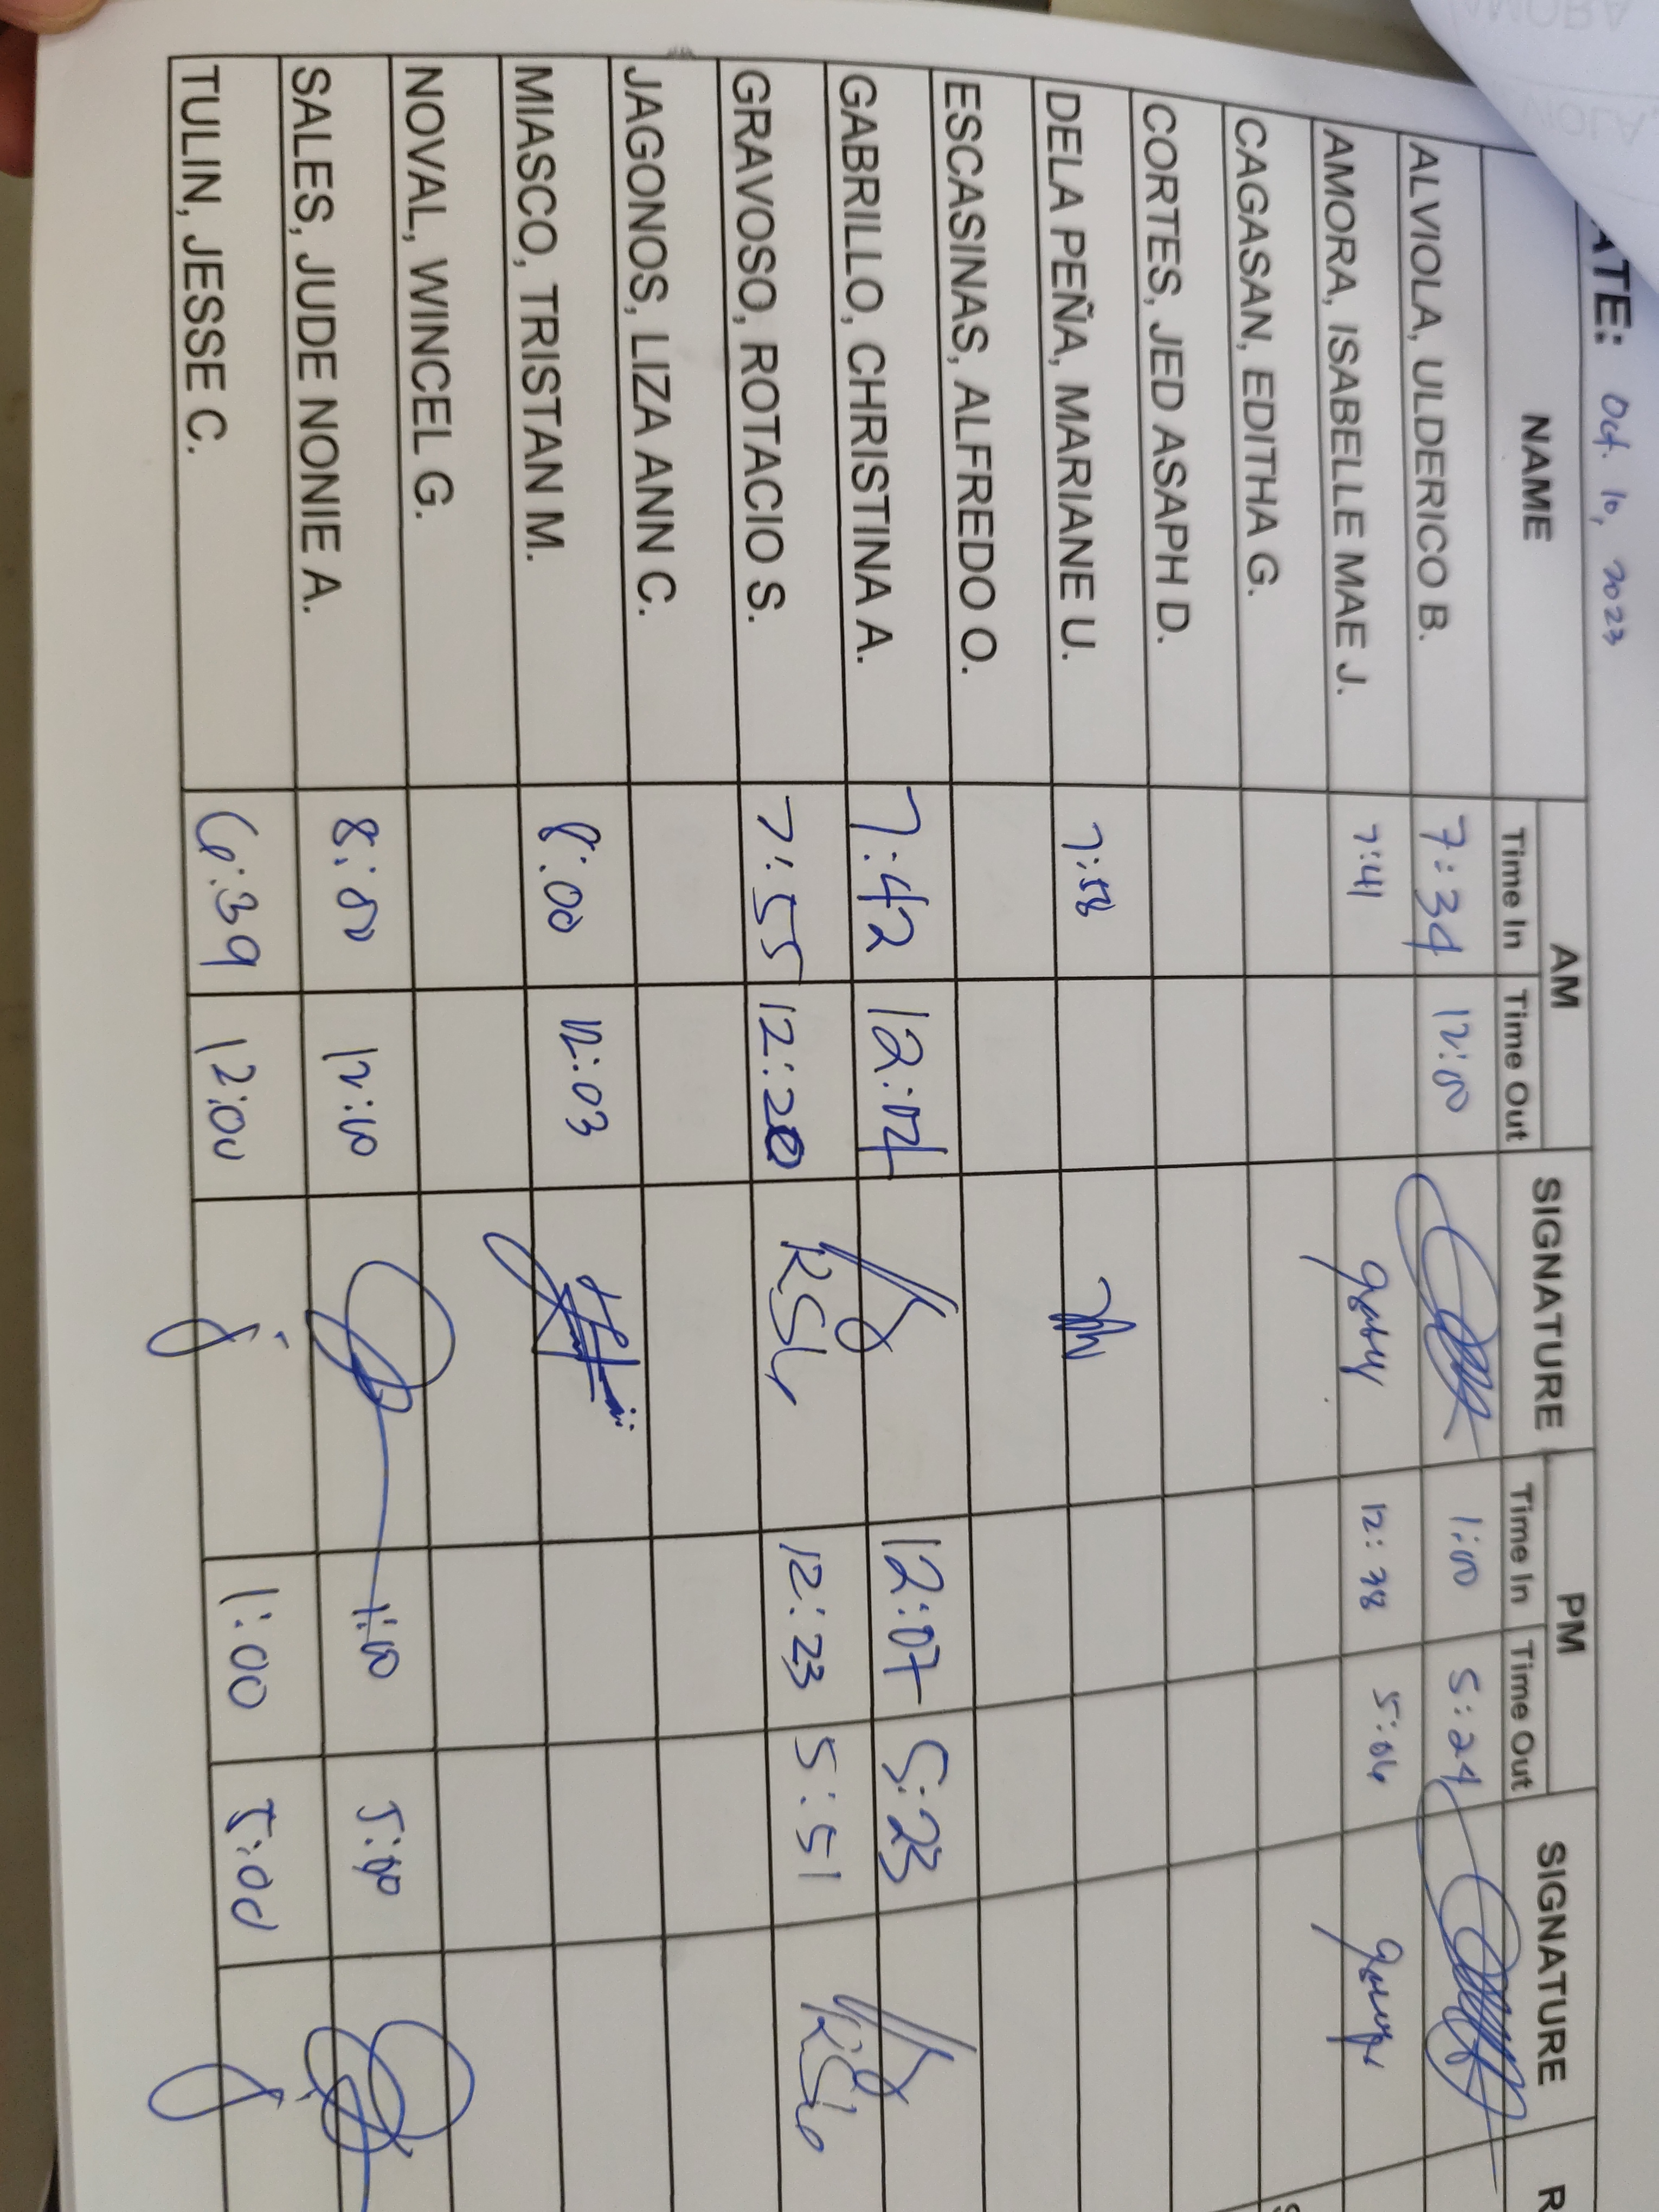 ATE: Oct. 10, 2023
NAME AM SIGNATURE PM SIGNATURE R
Time In Time Out Time In Time Out
ALVIOLA, ULDERICO B. 7:34 12:00 1:00 5:24
AMORA, ISABELLE MAE J. 7:41 12:38 5:06
CAGASAN, EDITHA G.
CORTES, JED ASAPH D.
DELA PEÑA, MARIANE U. 7:58
ESCASINAS, ALFREDO O.
GABRILLO, CHRISTINA A. 7:42 12:04 12:07 5:23
GRAVOSO, ROTACIO S. 7:55 12:20 12:23 5:51
JAGONOS, LIZA ANN C.
MIASCO, TRISTAN M. 8:00 12:03
NOVAL, WINCEL G.
SALES, JUDE NONIE A. 8:00 12:10 1:10 5:00
TULIN, JESSE C. 6:39 12:00 1:00 5:00